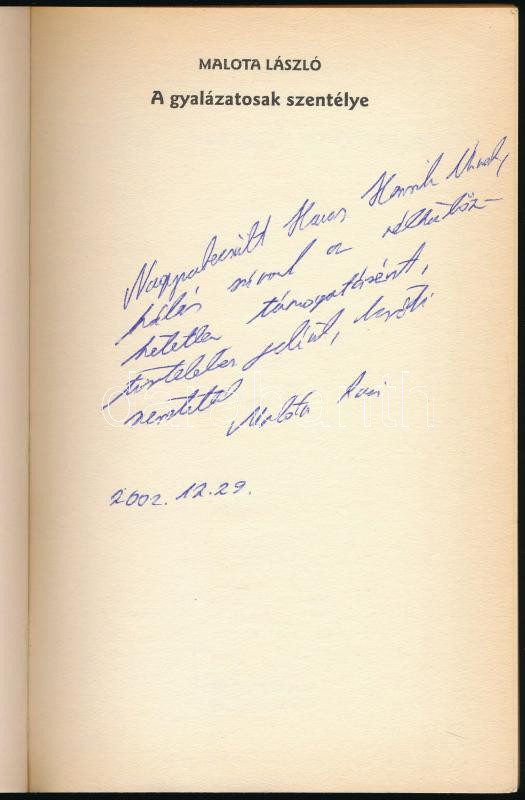 MALOTA LÁSZLÓ
A gyalázatosak szentélye
Nagyrabecsült Havas Henrik Úrnak,
hálás szívvel a nélkülöz-
hetetlen támogatásért,
tisztelete jeléül, baráti
szeretettel
Malota Laci
2002. 12. 29.
darabanth